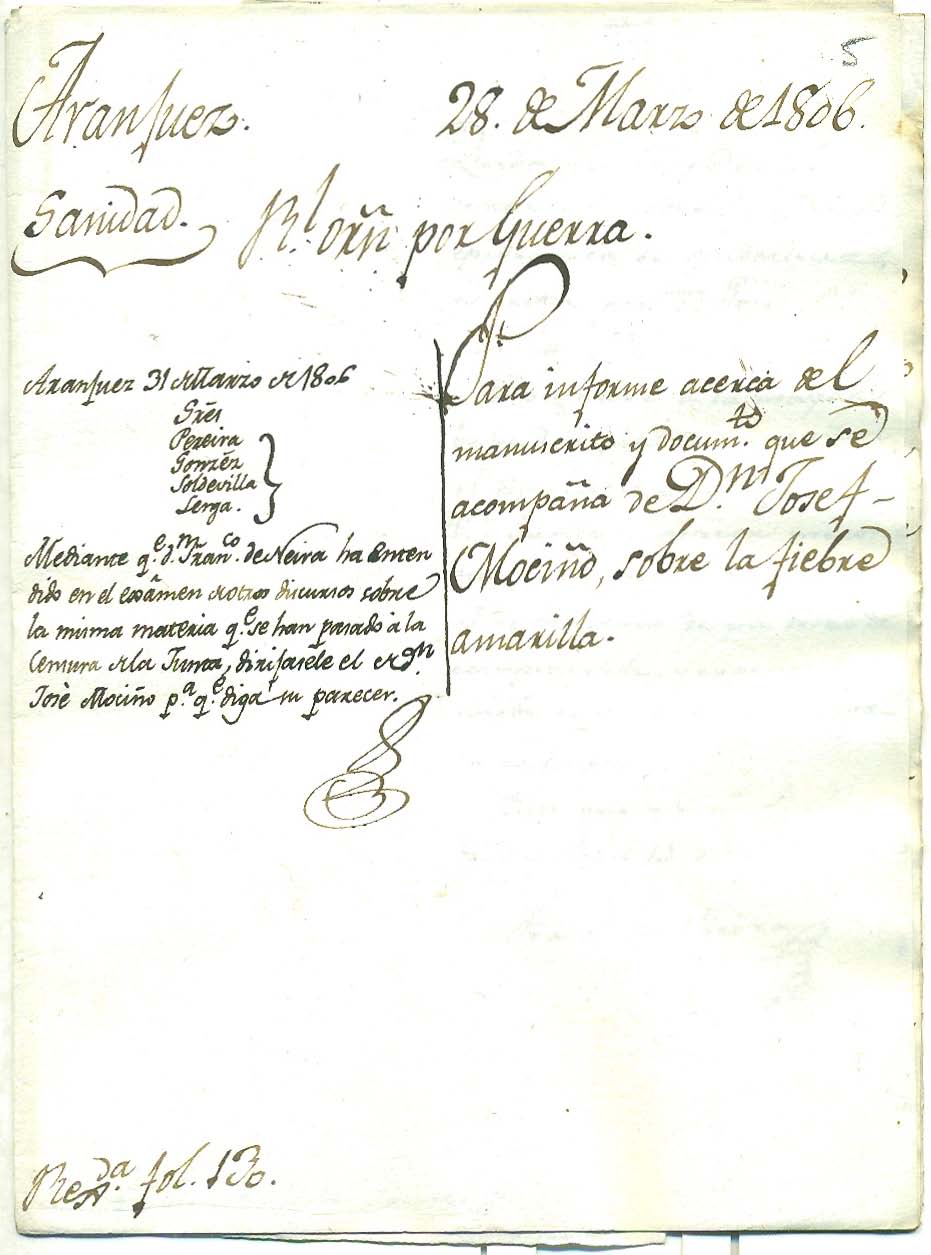 5
Aranjuez. 28. de Marzo de 1806.
Sanidad. Rl. orñ por Guerra.
Aranjuez 31 de Marzo de 1806
Sres
Pereira
Gonzêz
Soldevilla
Lerga.
Mediante q.e d.n Fran.co de Neira ha enten
dido en el exâmen de otros discursos sobre
la misma materia q.e se han pasado à la
Censura de la Junta, dirijasele el de d.n
Josè Mociño p.a q.e diga su parecer.
Para informe acerca del
manuscrito y docum.to que se
acompaña de D.n Josef
Mociño, sobre la fiebre
amarilla.
fol. 130.